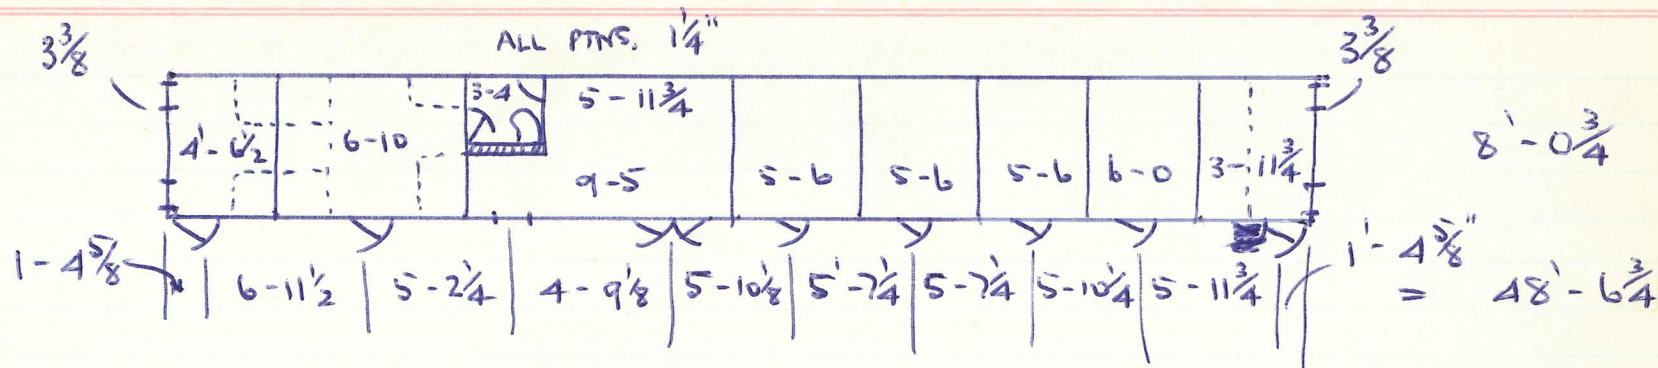 ALL PTNS. 1¼"
3⅜ 3⅜
3-4 5-11¾
4'-6½ 6-10 9-5 5-6 5-6 5-6 6-0 3-11¾ 8'-0¾
1-4⅝ 6-11½ 5-2¼ 4-9⅛ 5-10⅛ 5'-7¼ 5-7¼ 5-10¼ 5-11¾ 1'-4⅝" = 48'-6¾